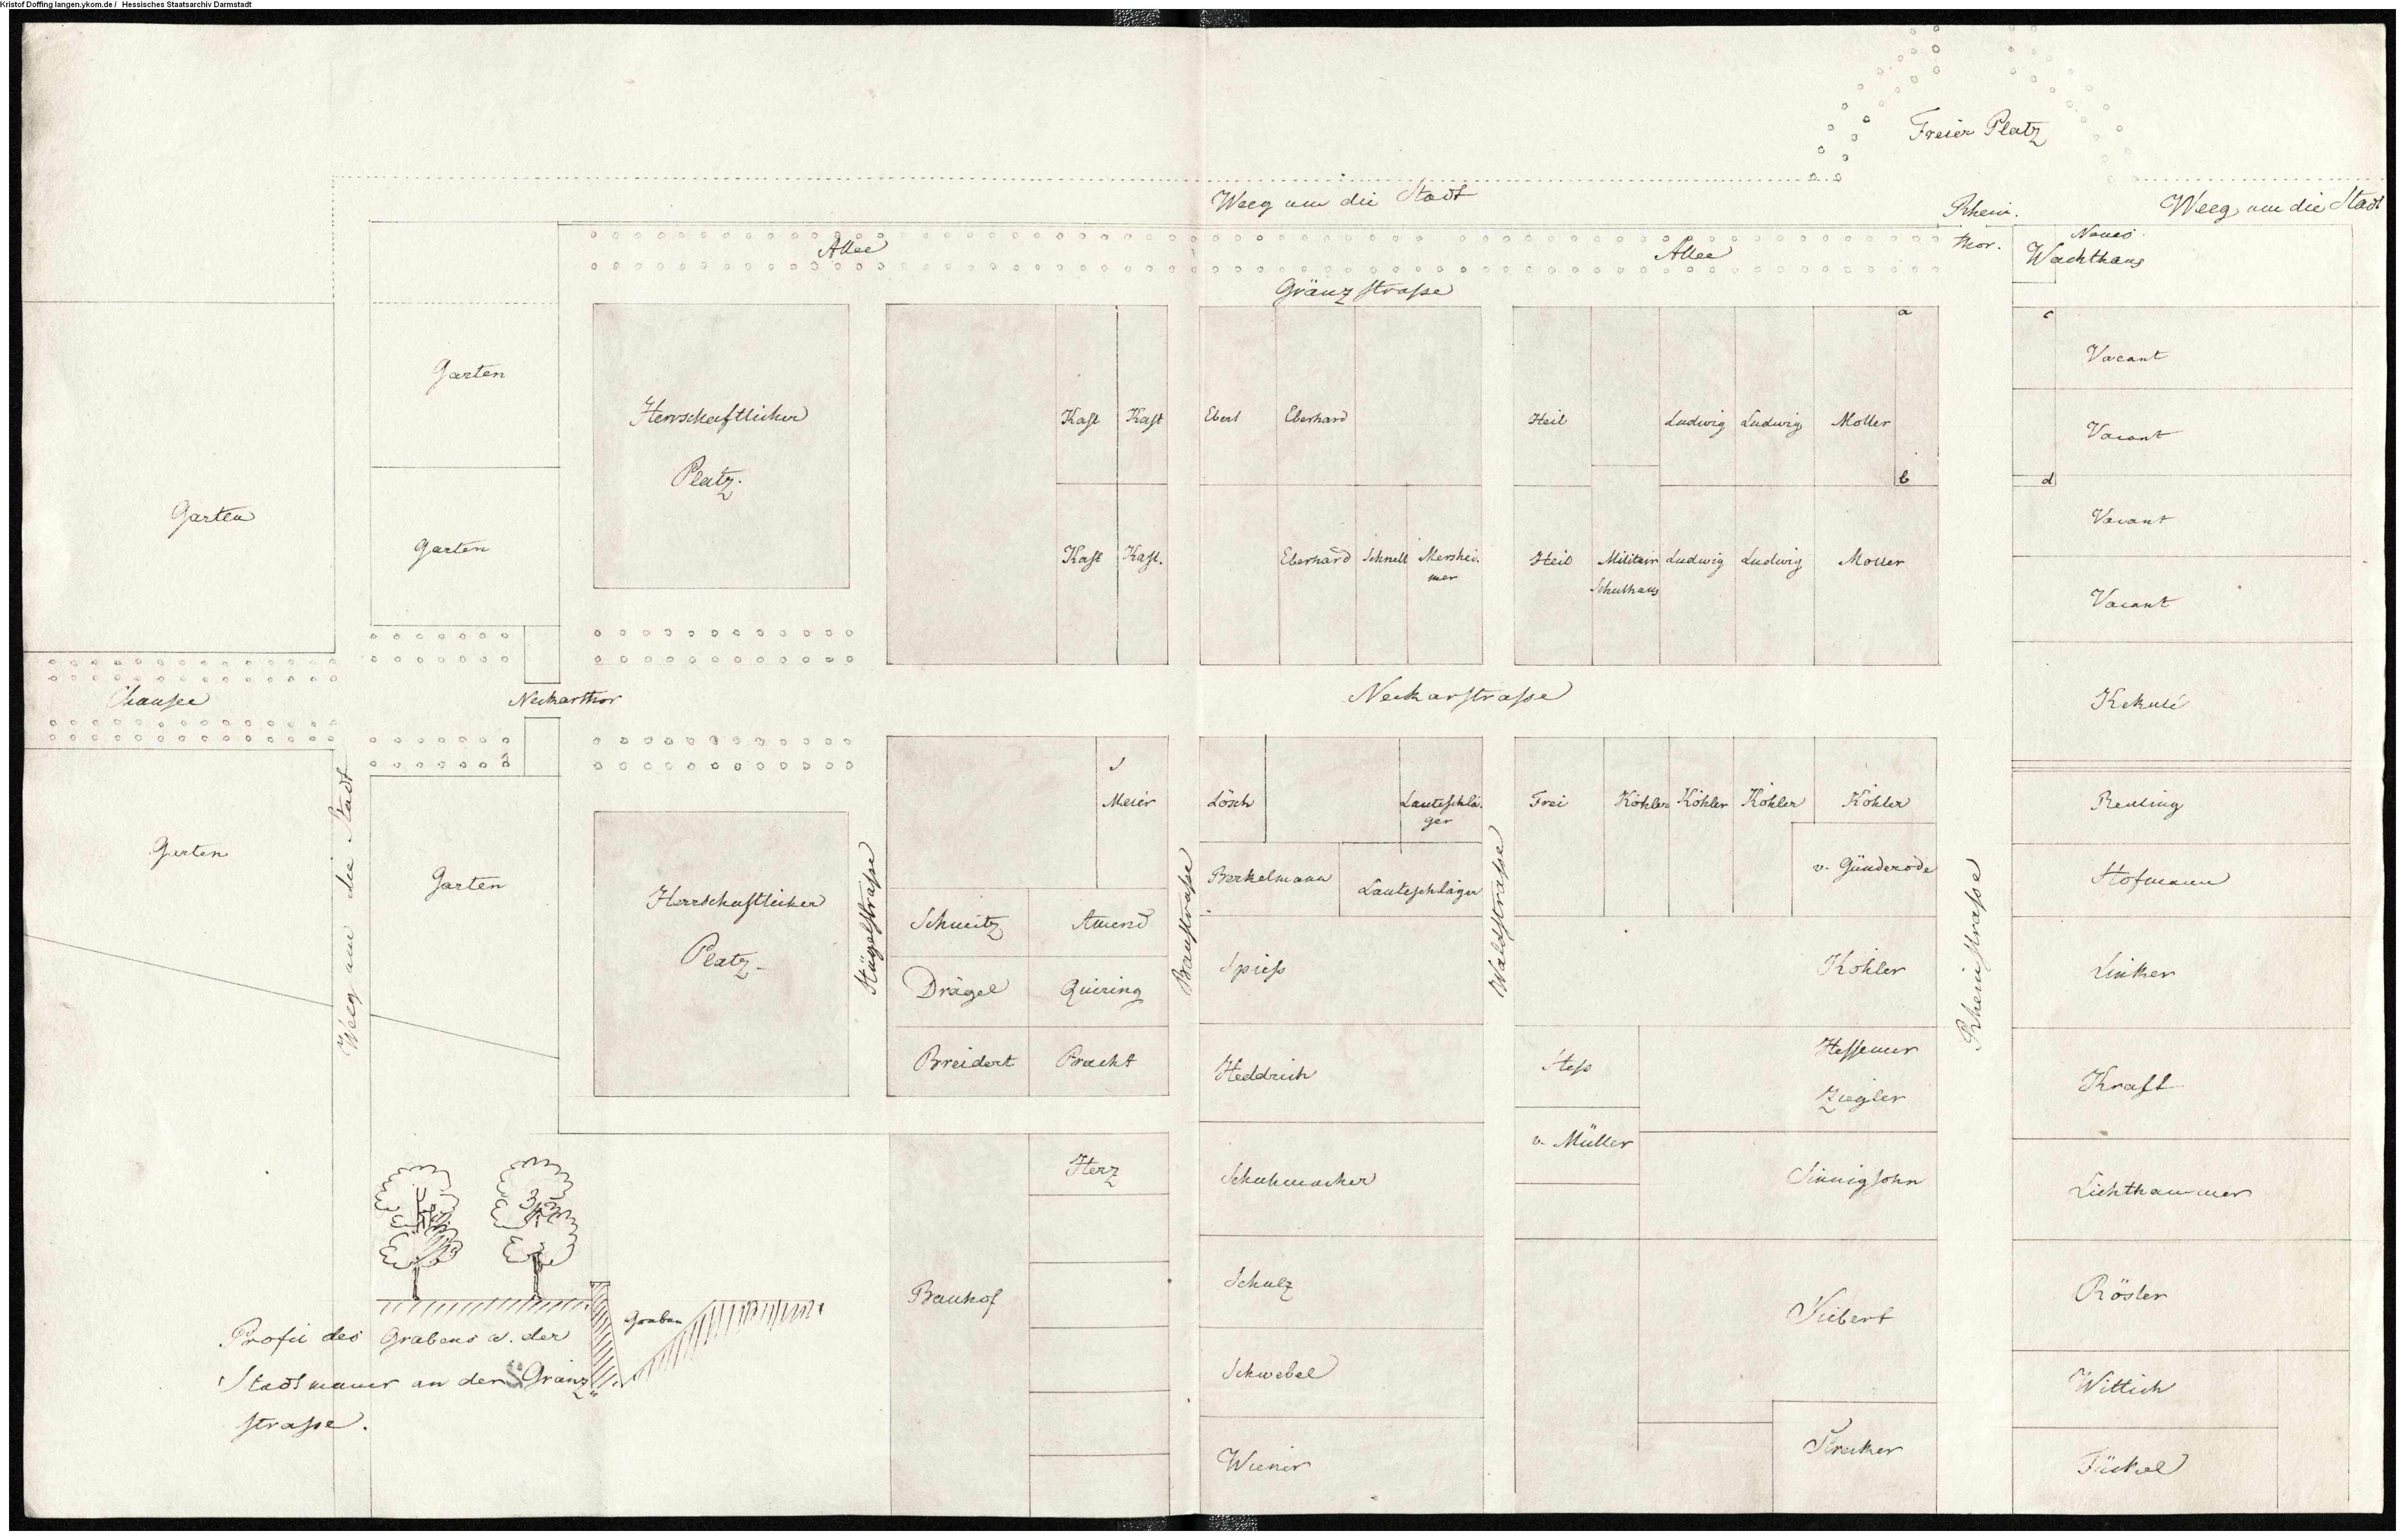 Kristof Doffing langen.ykom.de / Hessisches Staatsarchiv Darmstadt
Freier Platz
Weeg um die Stadt
Rhein.
thor.
Weeg um die Stadt
Neues
Wachthaus
Allee
Allee
Gränzstraße
a
c
Garten
Herrschaftlicher
Platz.
Kast
Kast
Ebert
Eberhard
Heil
Ludwig
Ludwig
Moller
b
Vacant
Vacant
d
Garten
Garten
Kast
Kast.
Eberhard
Schnell
Mershei.
mer
Heil
Militair
Schulhaus
Ludwig
Ludwig
Moller
Vacant
Vacant
Chausee
Neckarthor
Neckarstraße
Kekulé
Garten
Weeg um die Stadt
Garten
Herrschaftlicher
Platz.
Hügelstraße
Meier
Baustraße
Lösch
Lauteschlä.
ger
Waldstraße
Frei
Köhler
Köhler
Köhler
Köhler
Rheinstraße
Reuling
Berkelmann
Lauteschläger
v. Günderode
Hofmann
Schmitz
Amend
Spieß
Köhler
Linker
Drägel
Quiring
Breidert
Pracht
Heddrich
Heß
Hessemer
Ziegler
Kraft
v. Müller
Herz
Schuhmacher
Sinnigsohn
Lichthammer
Bauhof
Schulz
Siebert
Rösler
Graben
Profil des Grabens u. der
Stadtmauer an der Gränz„
straße.
Schwebel
Wittich
Wiener
Straker
Fückel